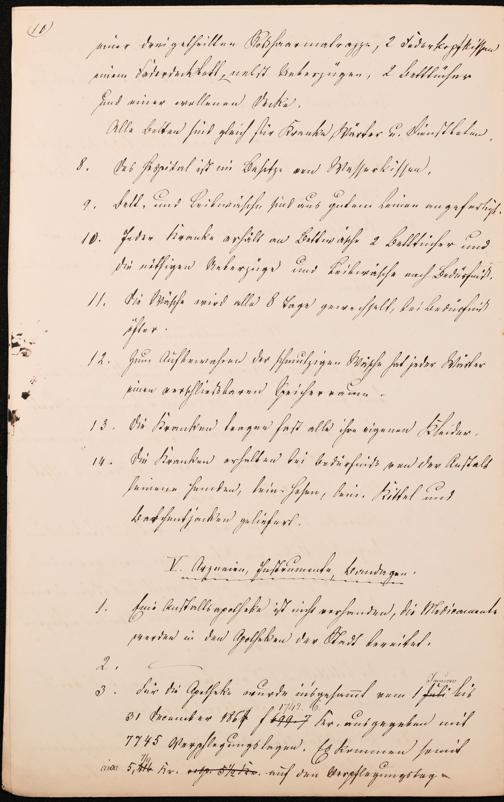 (10)
einer dreigetheilten Roßhaarmatrazze, 2 Federkopfkissen
einem Federdeckbett, nebst Ueberzügen, 2 Betttücher
und einer wollenen Decke.
Alle Betten sind gleich für Kranke, Wärter u. Dienstboten.
8. Das Hospital ist im Besitze von Wasserkissen.
9. Bett- und Leibwäsche sind aus gutem Leinen angefertigt.
10. Jeder Kranke erhält an Bettwäsche 2 Betttücher und
die nöthigen Ueberzüge und Leibwäsche nach Bedürfniß.
11. Die Wäsche wird alle 8 Tage gewechselt, bei Bedürfniß
öfter.
12. Zum Aufbewahren der schmutzigen Wäsche hat jeder Wärter
einen verschließbaren Speicherraum.
13. Die Kranken tragen fast alle ihre eigenen Kleider.
14. Die Kranken erhalten bei Bedürfniß von der Anstalt
leinene Hemden, lein. Hosen, lein. Kittel und
Barchentjacken geliefert.
V. Arzneien, Instrumente, Bandagen.
1. Eine Anstaltsapotheke ist nicht vorhanden, die Medicamente
werden in den Apotheken der Stadt bereitet.
2.
3. Für die Apotheke wurde insgesammt vom 1 Januar Juli bis
31 December 186 f Kr. ausgegeben mit
7745 Verpflegungstagen. Es kommen somit
circa 5, Kr. resp. 5½ Kr. auf den Verpflegungstag.